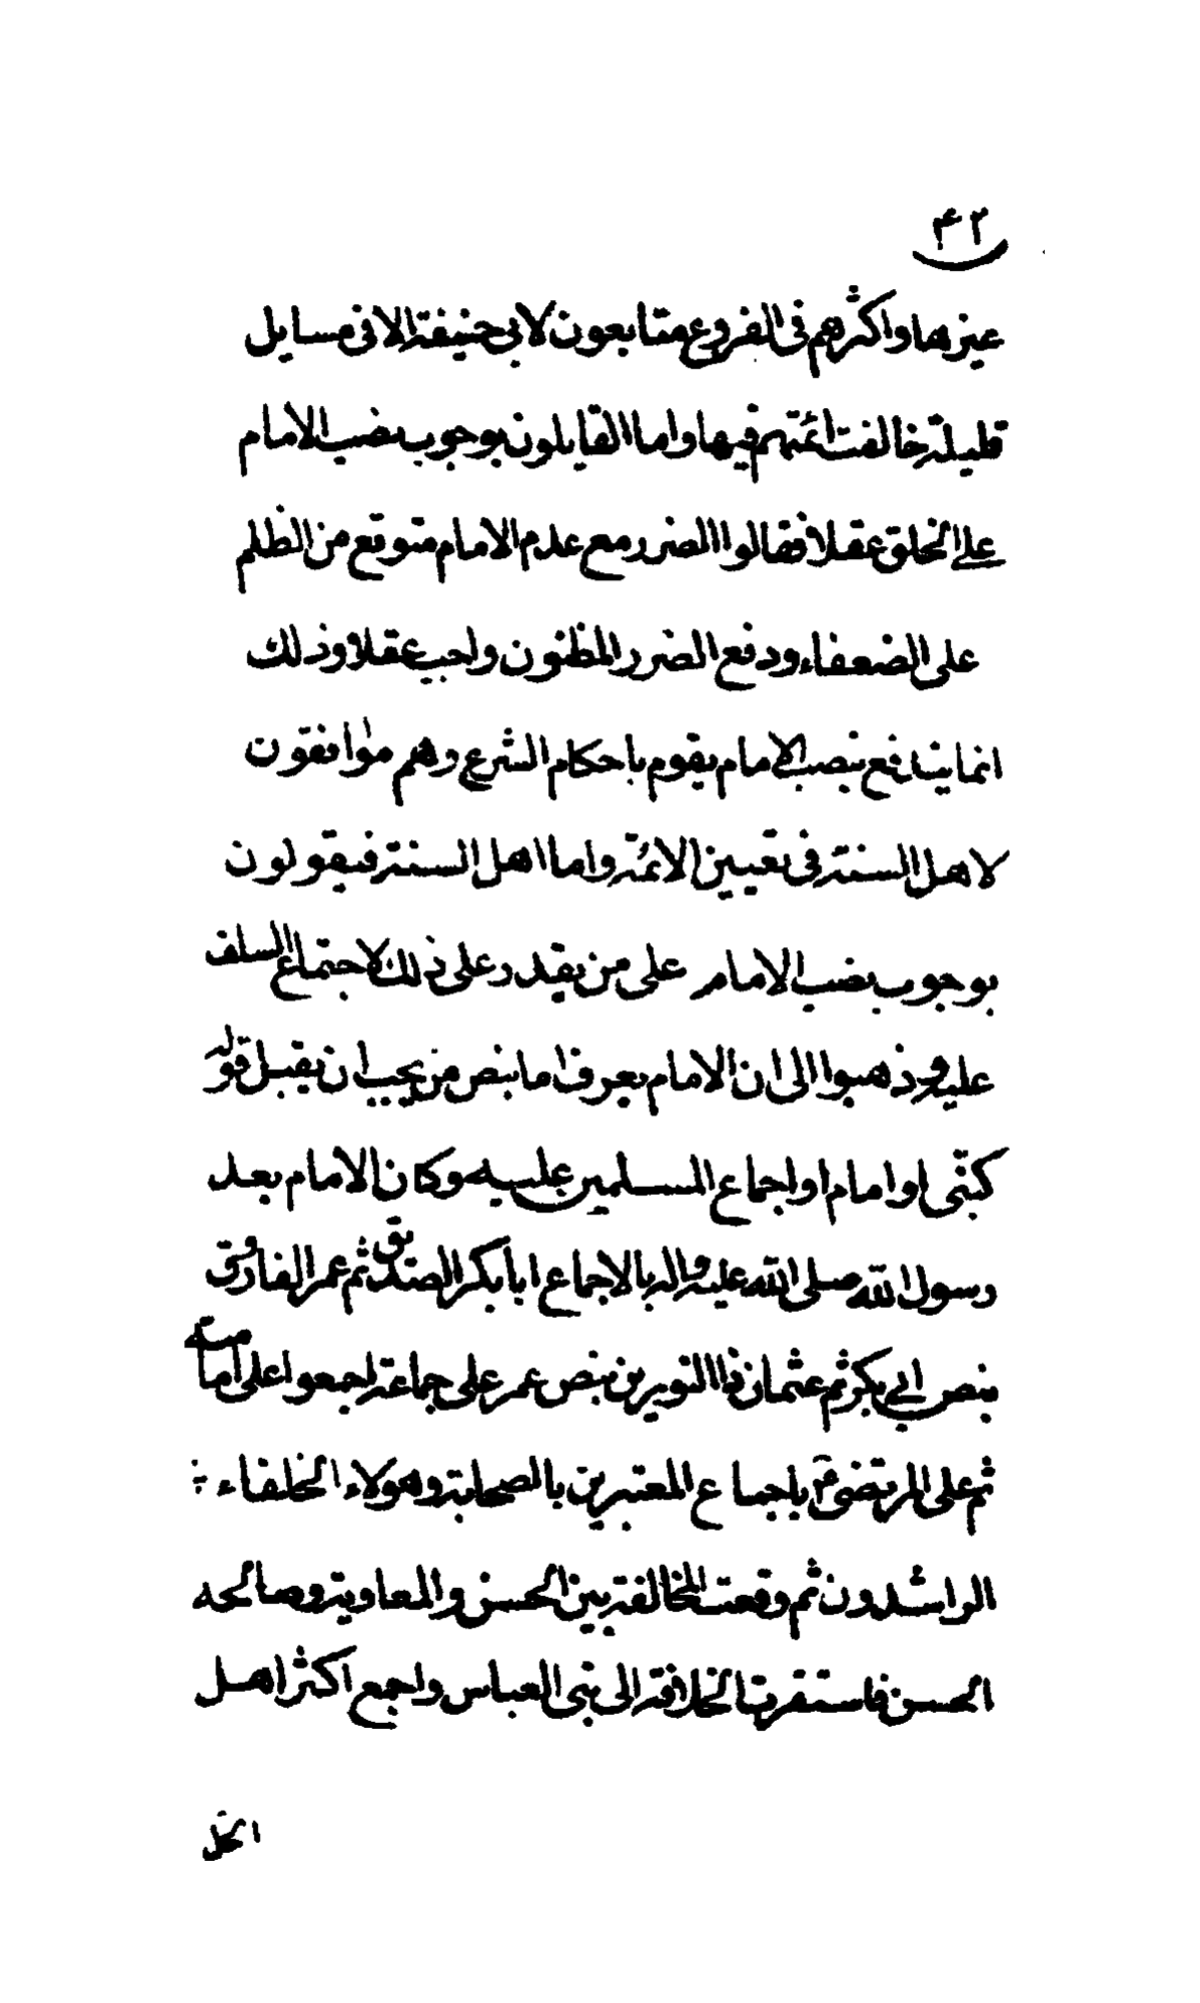 ۴۲
غيرها واكثرهم فى الفروع متابعون لابى حنيفة الا فى مسايل
قليلة خالفت ائمتهم فيها واما القايلون بوجوب نصب الامام
على الخلق عقلا فقالوا الضرر مع عدم الامام متوقع من الظلم
على الضعفاء ودفع الضرر المظنون واجب عقلا وذلك
انما يندفع بنصب الامام يقوم باحكام الشرع وهم موافقون
لاهل السنة فى تعيين الائمة واما اهل السنة فيقولون
بوجوب نصب الامام على من يقدر على ذلك لاجتماع السلف
عليه وذهبوا الى ان الامام يعرف اما بنص من يجب ان يقبل قوله
كنبى او امام او اجماع المسلمين عليه وكان الامام بعد
رسول الله صلى الله عليه واله بالاجماع ابا بكر الصديق ثم عمر الفاروق
بنص ابى بكر ثم عثمان ذا النورين بنص عمر على جماعة اجمعوا على امامته
ثم على المرتضى ع باجماع المعتبرين بالصحابة وهولاء الخلفاء
الراشدون ثم وقعت المخالفة بين الحسن والمعاوية وصالحه
الحسن فاستقرت الخلافة الى بنى العباس واجمع اكثر اهل
الحل